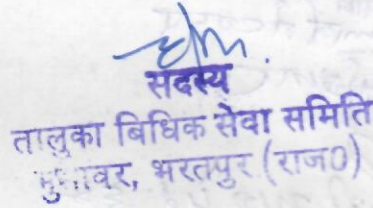 सदस्य
तालुका बिधिक सेवा समिति
भरतपुर (राज0)